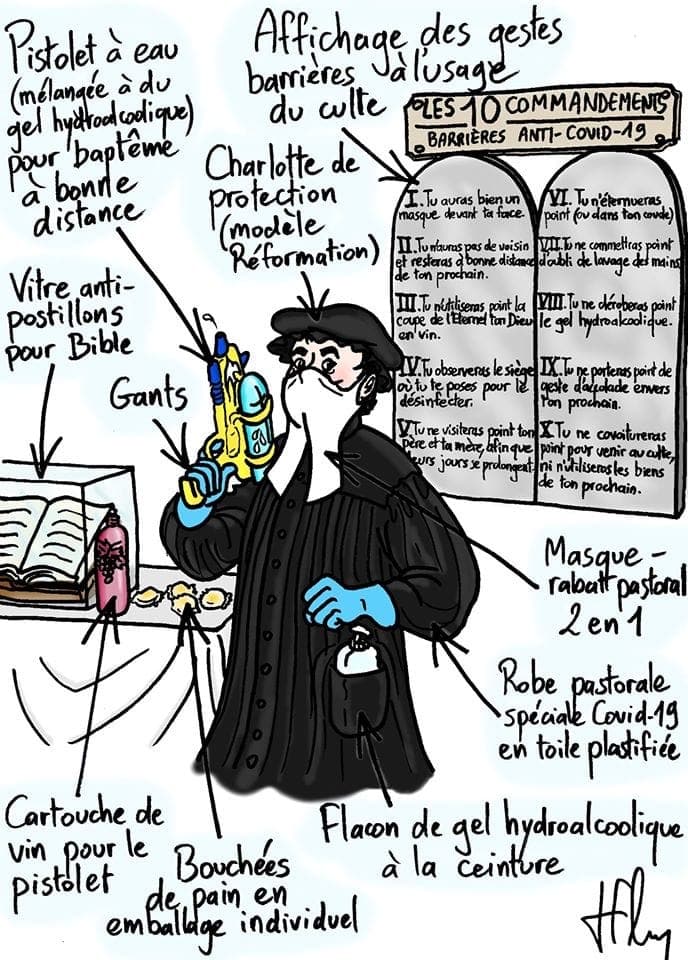 Pistolet à eau
(mélangée à du
gel hydroalcoolique)
pour baptême
à bonne
distance
Affichage des gestes
barrières à l'usage
du culte
LES 10 COMMANDEMENTS
BARRIÈRES ANTI-COVID-19
I. Tu auras bien un
masque devant ta face.
II. Tu n'auras pas de voisin
et resteras à bonne distance
de ton prochain.
III. Tu n'utiliseras point la
coupe de l'Eternel ton Dieu
en vin.
IV. Tu observeras le siège
où tu te poses pour le
désinfecter.
V. Tu ne visiteras point ton
père et ta mère, afin que
leurs jours se prolongent.
VI. Tu n'éternueras
point (ou dans ton coude)
VII. Tu ne commettras point
d'oubli de lavage des mains
VIII. Tu ne déroberas point
le gel hydroalcoolique.
IX. Tu ne porteras point de
geste d'accolade envers
ton prochain.
X. Tu ne covoitureras
point pour venir au culte,
ni n'utiliseras les biens
de ton prochain.
Charlotte de
protection
(modèle
Réformation)
Vitre anti-
postillons
pour Bible
Gants
Masque-
rabatt pastoral
2 en 1
Robe pastorale
spéciale Covid-19
en toile plastifiée
Cartouche de
vin pour le
pistolet
Bouchées
de pain en
emballage individuel
Flacon de gel hydroalcoolique
à la ceinture